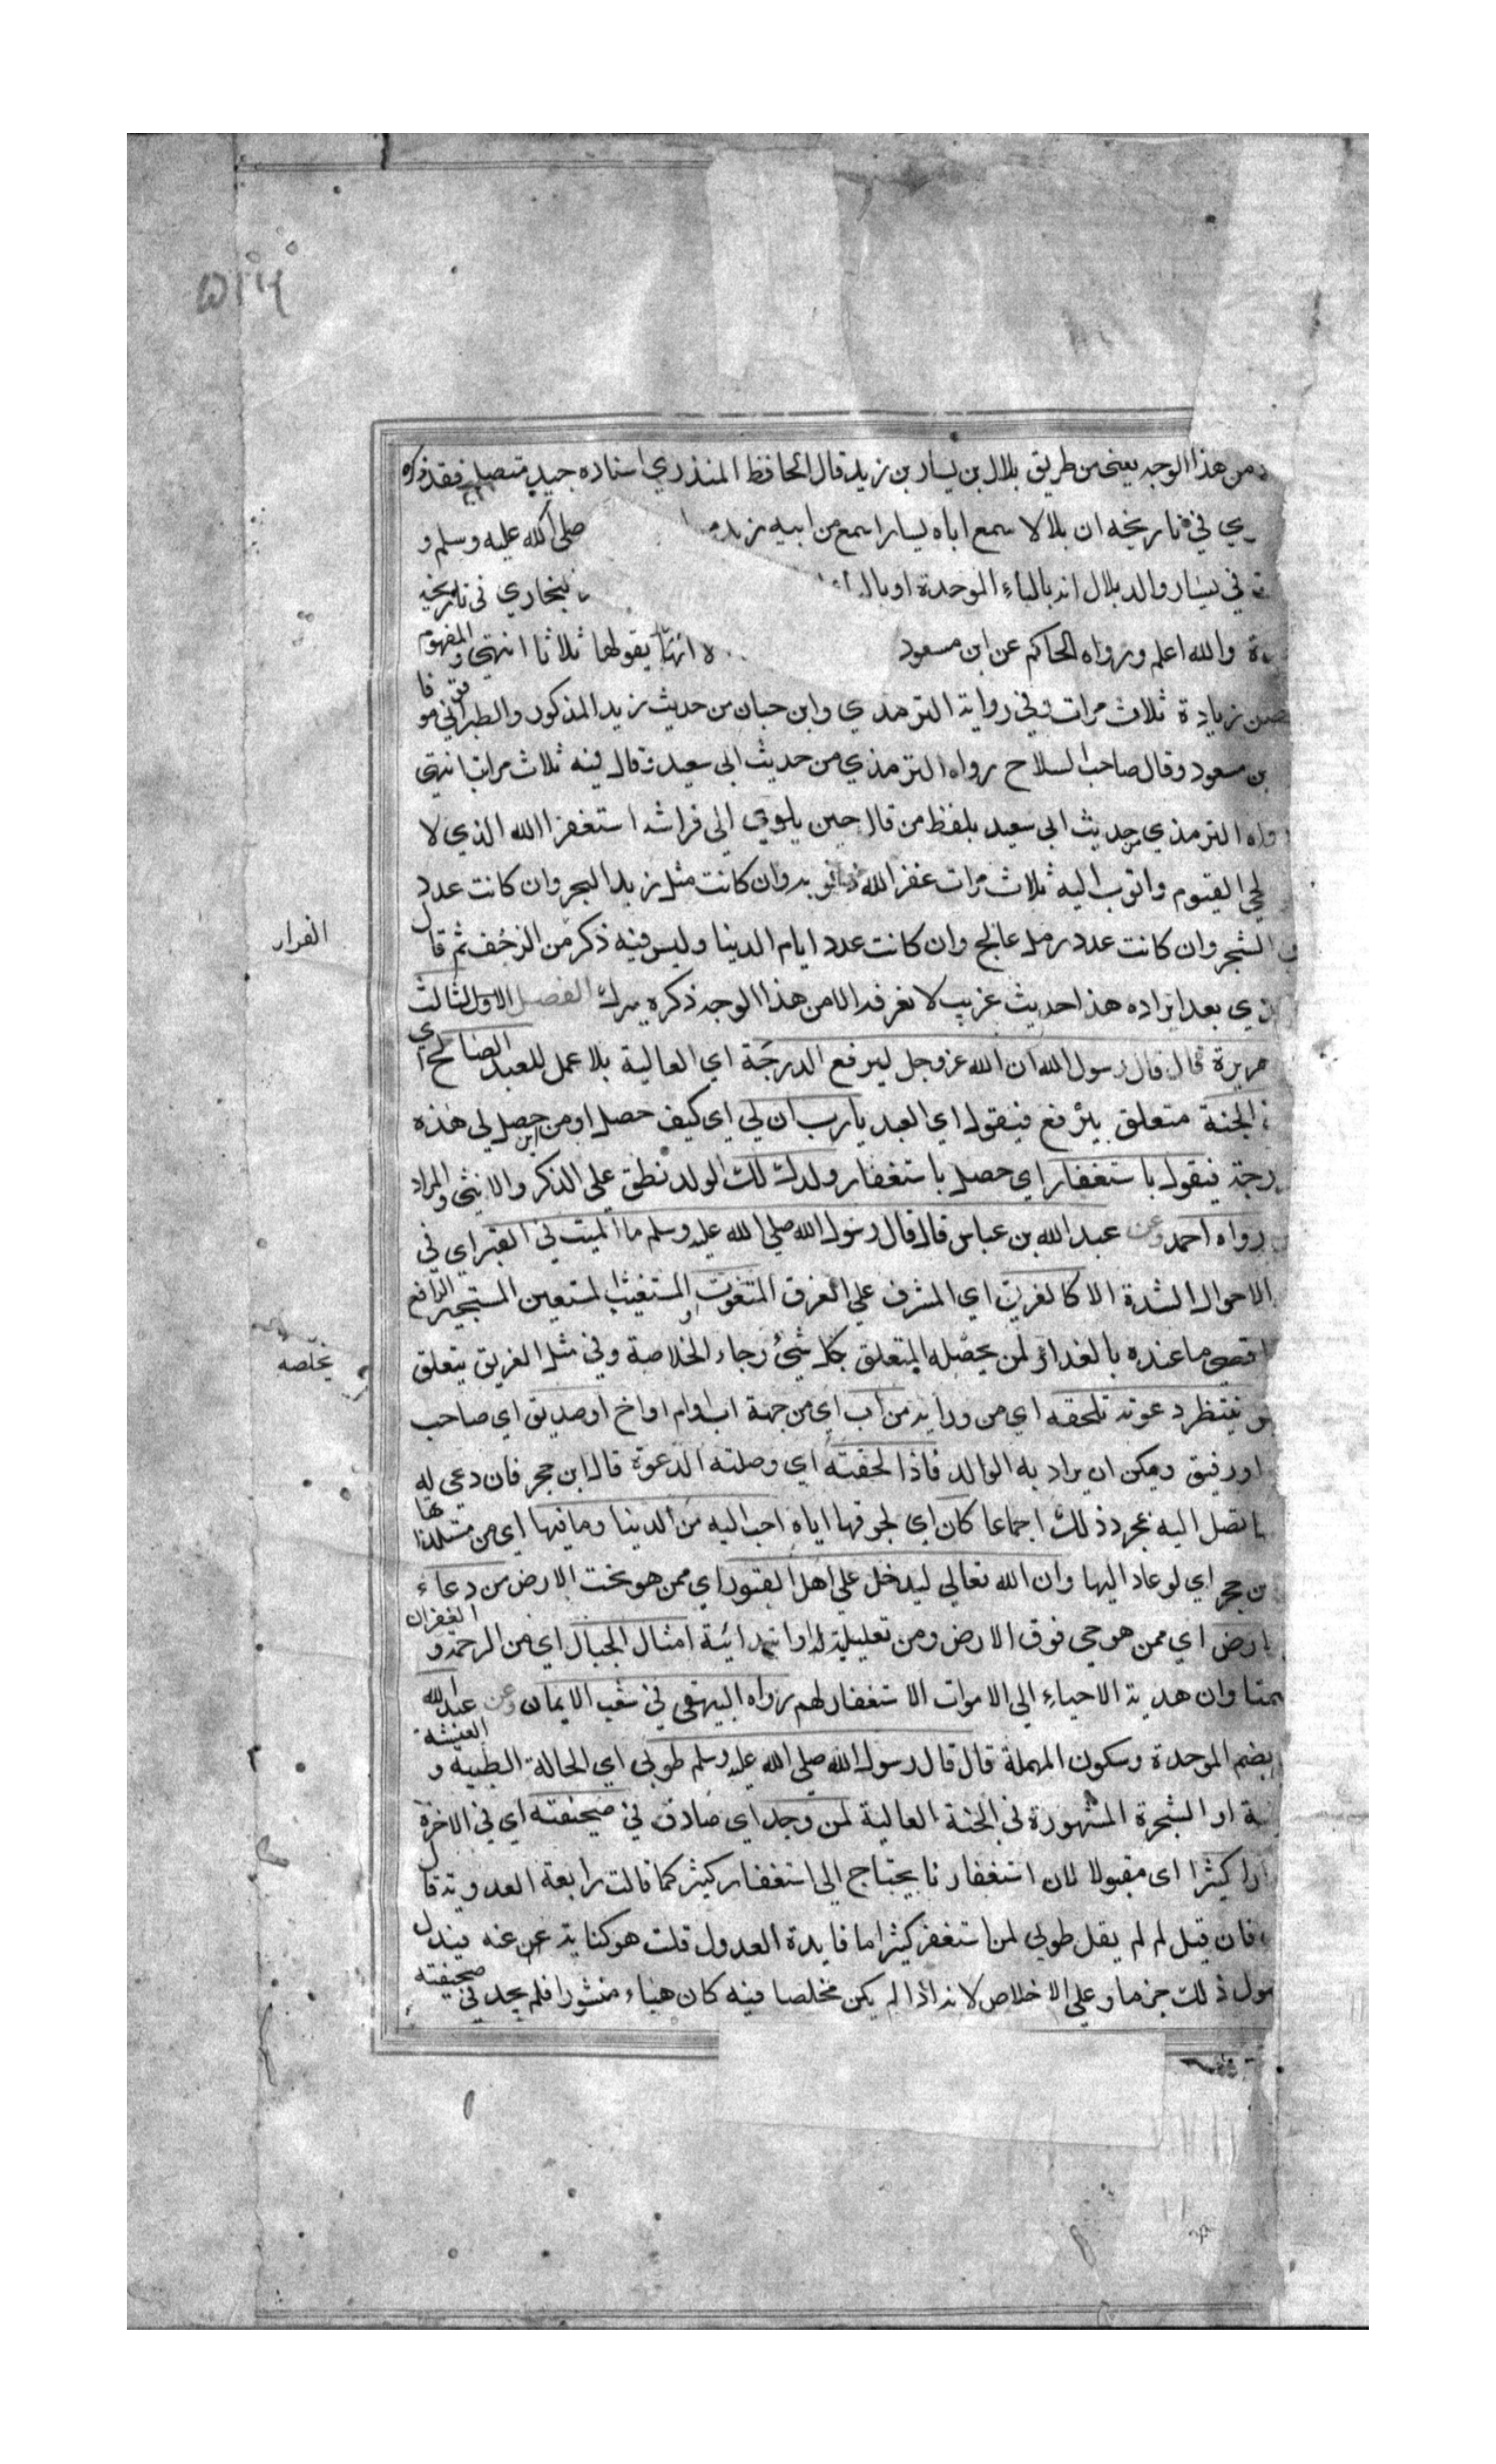 من هذا الوجه يعني من طريق بلال بن يسار بن زيد قال الحافظ المنذري اسناده جيد متصل فقد ذكره
ري في تاريخه ان بلالا سمع اباه يسارا سمع من ابيه زيد صلى الله عليه وسلم و
في يسار والد بلال انه بالباء الموحدة او بخاري في تاريخه
والله اعلم ورواه الحاكم عن ابن مسعود يقولها ثلاثا انتهى والمفهوم
زيادة ثلاث مرات وفي رواية الترمذي وابن حبان من حديث زيد المذكور والطبراني موقوفا
بن مسعود وقال صاحب السلاح رواه الترمذي من حديث ابي سعيد وقال فيه ثلاث مرات انتهى
رواه الترمذي من حديث ابي سعيد بلفظ من قال حين ياوي الى فراشه استغفر الله الذي لا
لحي القيوم واتوب اليه ثلاث مرات غفر الله ذنوبه وان كانت مثل زبد البحر وان كانت عدد
الشجر وان كانت عدد رمل عالج وان كانت عدد ايام الدنيا وليس فيه ذكر من الزحف ثم قال
الفرار
ذي بعد ايراده هذا حديث غريب لا نعرفه الا من هذا الوجه ذكره ميرك الفصل الثالث
هريرة قال قال رسول الله ان الله عز وجل ليرفع الدرجة اي العالية بلا عمل للعبد الصالح اي
الجنة متعلق بيرفع فيقول اي العبد يا رب انى لي اي كيف حصل او من اين حصل لي هذه
رجة فيقول باستغفار اي حصل باستغفار ولدك لك الولد نطق على الذكر والانثى والمراد
رواه احمد وعن عبد الله بن عباس قال قال رسول الله صلى الله عليه وسلم ما الميت في القبر اي في
الاحوال الشدة الا كالغريق اي المشرف على الغرق المتغوث المستغيث المستعين المستجير الرافع
اقصى ما عنده بالنداء لمن يخلصه المتعلق بكل شيء رجاء لخلاصه وفي مثل الغريق يتعلق
يخلصه
ينتظر دعوة تلحقه اي من ورائه من اب اي من جهة اب او ام او اخ او صديق اي صاحب
او رفيق ويمكن ان يراد به الوالد فاذا لحقته اي وصلته الدعوة قال ابن حجر فان دعي له
تصل اليه بمجرد ذلك اجماعا كان اي لحوقها اياه احب اليه من الدنيا وما فيها اي من مستلذاتها
بن حجر اي لو عاد اليها وان الله تعالى ليدخل على اهل القبور اي ممن هو تحت الارض من دعاء
الارض اي ممن هو حي فوق الارض ومن تعليلية او ابتدائية امثال الجبال اي من الرحمة والغفران
وان هدية الاحياء الى الاموات الاستغفار لهم رواه البيهقي في شعب الايمان وعن عبد الله
بضم الموحدة وسكون المهملة قال قال رسول الله صلى الله عليه وسلم طوبى اي الحالة الطيبة والعيشة
او الشجرة المشهورة في الجنة العالية لمن وجد اي صادف في صحيفته اي في الاخرة
كثيرا اى مقبولا لان استغفارنا يحتاج الى استغفار كثير كما قالت رابعة العدوية قال
فان قيل لم لم يقل طوبى لمن استغفر كثيرا ما فايدة العدول قلت هو كناية عن عنه فيدل
ذلك جزما وعلى الاخلاص لانه اذا لم يكن مخلصا فيه كان هباء منثورا فلم يجد في صحيفته